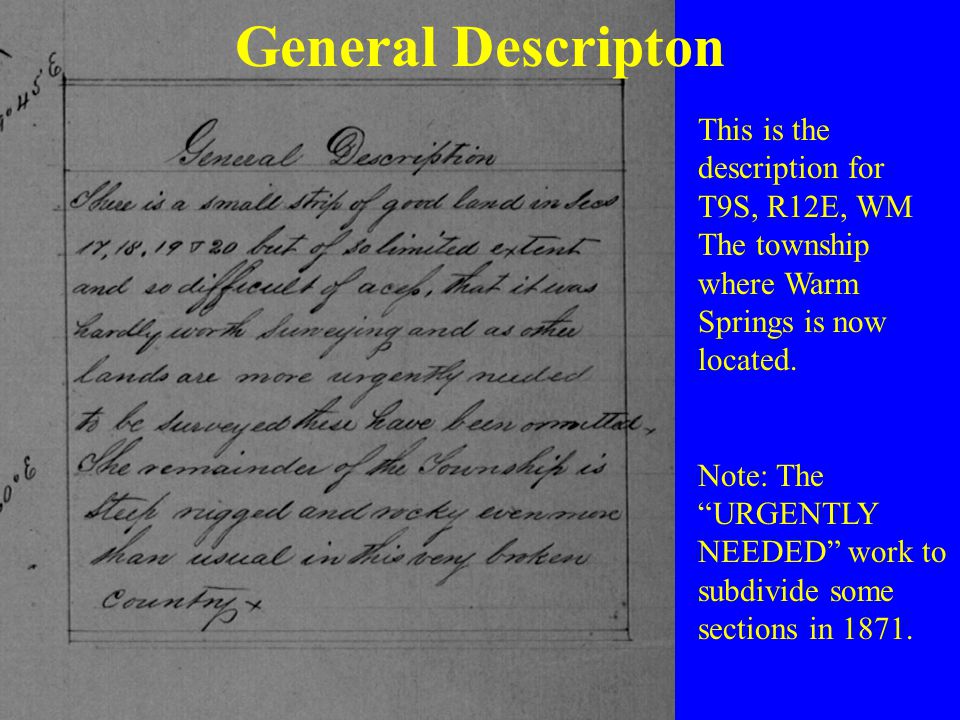 General Descripton
General Description
There is a small strip of good land in Secs
17, 18, 19 & 20 but of so limited extent
and so difficult of acess, that it was
hardly worth surveying and as other
lands are more urgently needed
to be surveyed these have been ommitted,
The remainder of the Township is
steep rugged and rocky even more
than usual in this very broken
country
45' E
0° E
This is the
description for
T9S, R12E, WM
The township
where Warm
Springs is now
located.
Note: The
“URGENTLY
NEEDED” work to
subdivide some
sections in 1871.